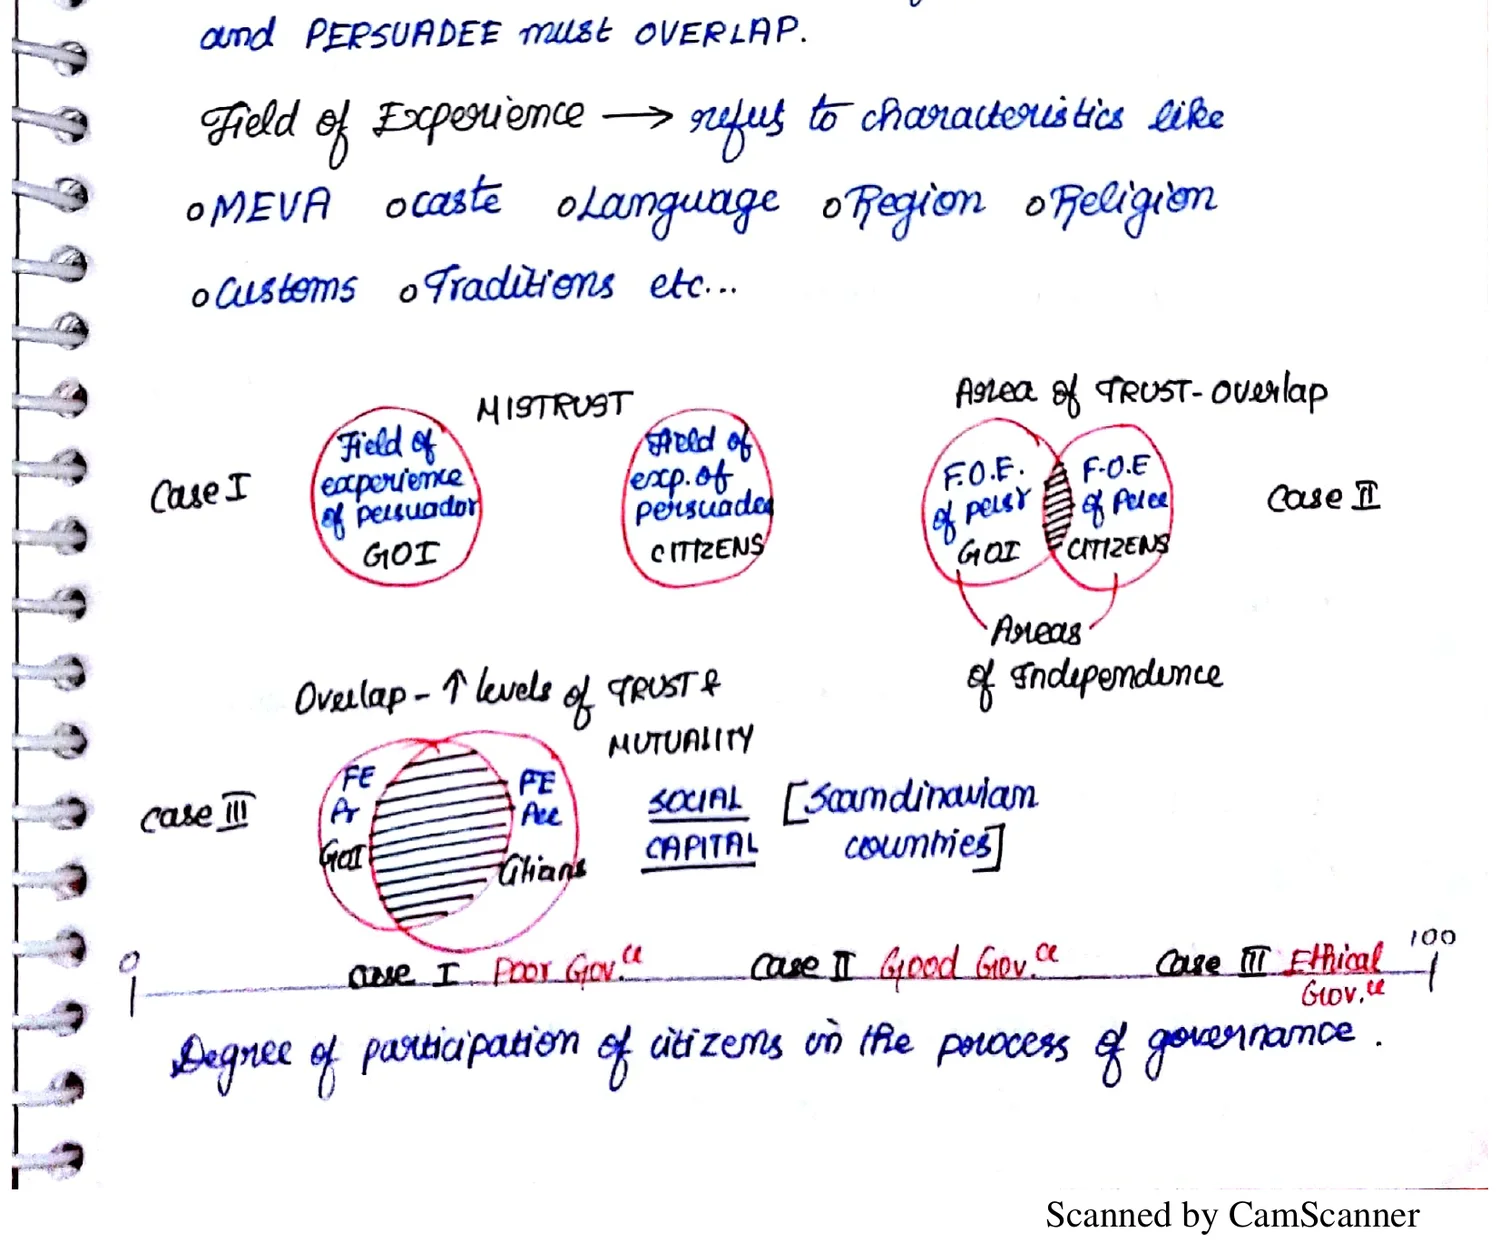 and PERSUADEE must OVERLAP.
Field of Experience → refers to characteristics like
o MEVA o caste o Language o Region o Religion
o Customs o Traditions etc...
MISTRUST
Area of TRUST-overlap
Case I
Field of
experience
of persuador
GOI
Field of
exp. of
persuadee
CITIZENS
F.O.E.
of persr
GOI
F.O.E
of persee
CITIZENS
Case II
Areas
of Independence
Overlap - ↑ levels of TRUST &
MUTUALITY
Case III
FE
Pr
GOI
FE
Pee
Citizens
SOCIAL
CAPITAL
[Scandinavian
countries]
0
Case I Poor Gov.ce
Case II Good Gov.ce
Case III Ethical
Gov.ce
100
Degree of participation of citizens in the process of governance.
Scanned by CamScanner